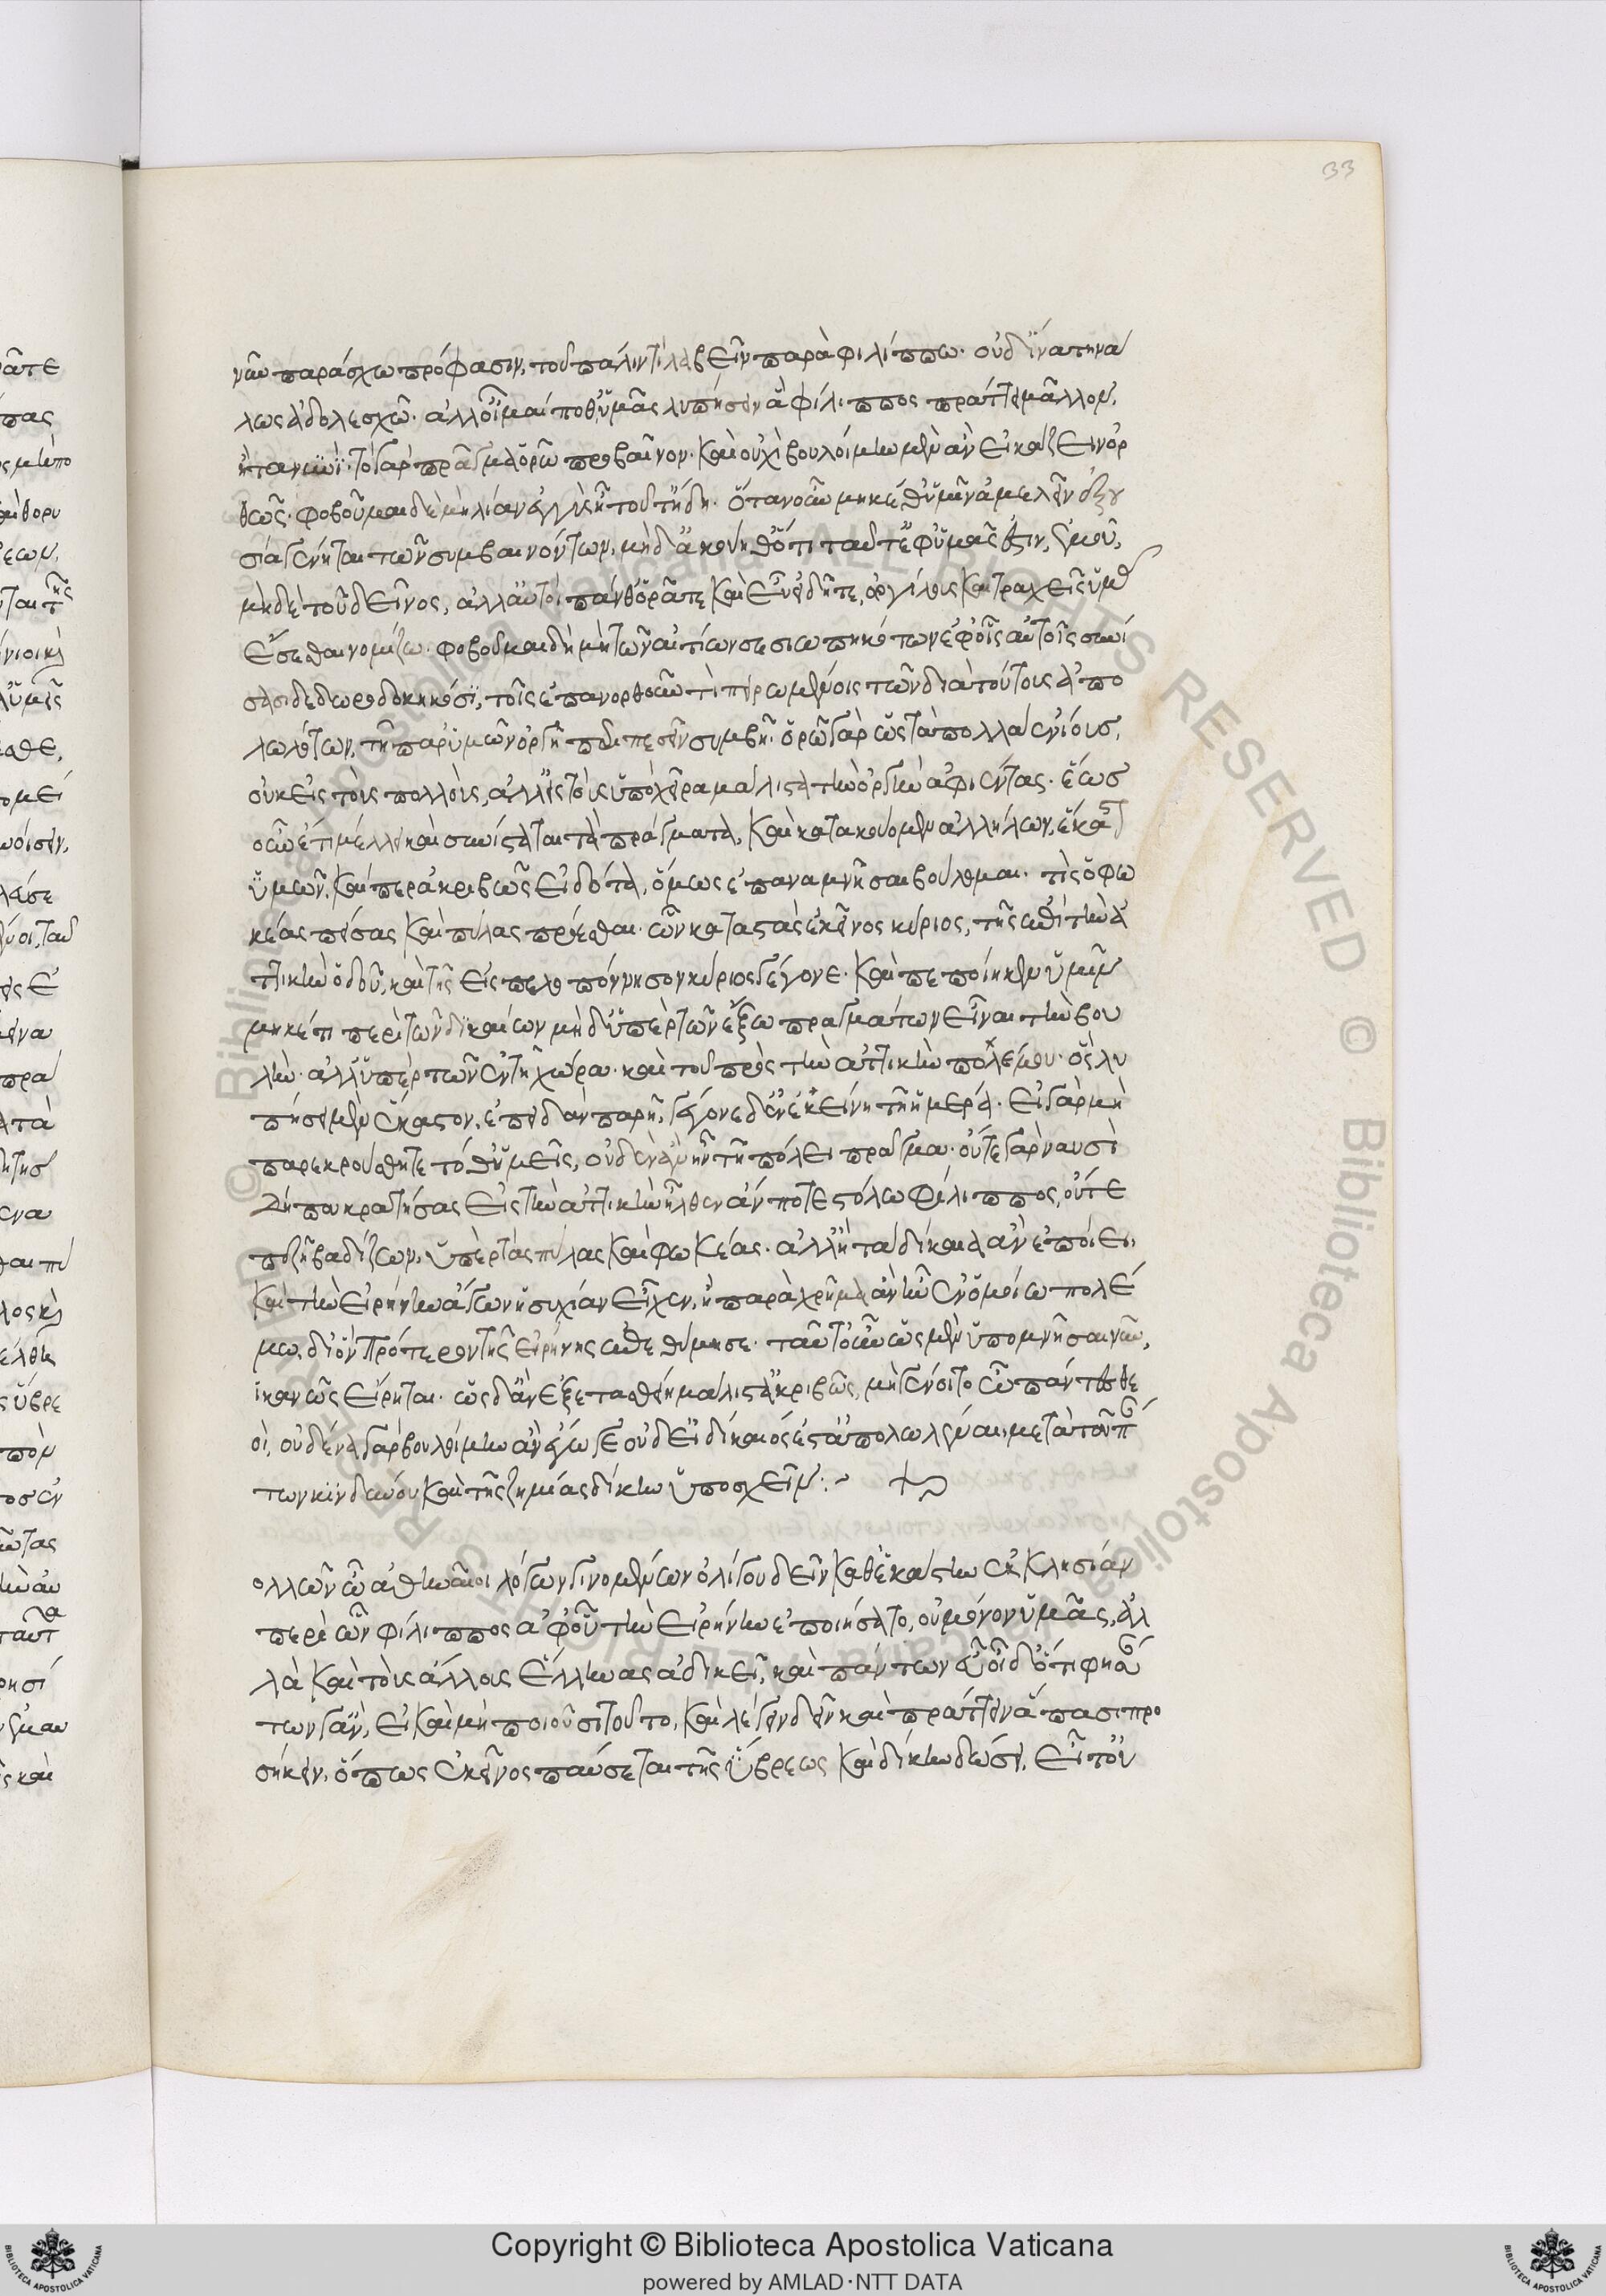 33
νῦν παράσχω πρόφασιν, τοῦ πάλιν τὶ λαβεῖν παρὰ φιλίππω· οὐδ' ἵνα τηνα
λως ἀδολεσχῶ· ἀλλ' οἶμαί ποθ' ὑμᾶς λυπήσειν ἃ φίλιππος πράττει μᾶλλον,
ἢ τανυνί· τὸ γὰρ πρᾶγμα ὁρῶ προβαῖνον· καὶ οὐχὶ βουλοίμην μὲν ἂν εἰκάζειν ὀρ
θῶς· φοβοῦμαι δὲ μὴ λίαν ἐγγὺς ἦ τοῦτ' ἤδη· ὅταν οὖν μηκέθ' ὑμῖν ἀμελεῖν ἐξου
σία γένηται τῶν συμβαινόντων, μὴδ' ἀκούηθ' ὅτι ταῦτ' ἐφ' ὑμᾶς ἐστιν, ἐμοῦ,
μὴδὲ τοῦ δεῖνος, ἀλλ' αὐτοὶ πάνθ' ὁρᾶτε καὶ εὖ εἰδῆτε, ὀργίλους καὶ τραχεῖς ὑμᾶς
ἔσεσθαι νομίζω· φοβοῦμαι δὴ μὴ τῶν αἰτίων σεσιωπηκότων ἐφ' οἷς αὐτοῖς συνί
σασι δεδωροδοκηκόσι, τοῖς ἐπανορθοῦν τὶ πειρωμένοις τῶν διὰ τούτους ἀπο
λωλότων, τῆ παρ' ὑμῶν ὀργῆ περιπεσεῖν συμβῆ· ὁρῶ γὰρ ὡς τὰ πολλὰ ἐνίους,
οὐκ εἰς τοὺς πολλοὺς, ἀλλ' εἰς τοὺς ὑπὸ χεῖρα μάλιστα τὴν ὀργὴν ἀφιέντας· ἕως
οὖν ἔτι μέλλει καὶ συνίσταται τὰ πράγματα, καὶ κατακούομεν ἀλλήλων, ἕκαστον
ὑμῶν, καίπερ ἀκριβῶς εἰδότα, ὅμως ἐπαναμνῆσαι βούλομαι· τίς ὁ φω
κέας πείσας καὶ πύλας προέσθαι· ὧν καταστὰς ἐκεῖνος κύριος, τῆς ἐπὶ τὴν ἀτ
τικὴν ὁδοῦ, καὶ τῆς εἰς πελοπόννησον κύριος γέγονε· καὶ πεποίηκεν ὑμῖν
μηκέτι περὶ τῶν δικαίων μὴδ' ὑπὲρ τῶν ἔξω πραγμάτων εἶναι τὴν βου
λὴν· ἀλλ' ὑπὲρ τῶν ἐν τῆ χώρα· καὶ τοῦ πρὸς τὴν ἀττικὴν πολέμου· ὃς λυ
πήσει μὲν ἕκαστον, ἐπειδὰν παρῆ, γέγονε δ' ἐν ἐκείνη τῆ ἡμέρα· εἰ γὰρ μὴ
παρεκρούσθητε τόθ' ὑμεῖς, οὐδὲν ἂν ἦν τῆ πόλει πρᾶγμα· οὔτε γὰρ ναυσὶ
δήπου κρατήσας εἰς τὴν ἀττικὴν ἦλθεν ἄν ποτε στόλω φίλιππος, οὔτε
πεζῆ βαδίζων, ὑπὲρ τὰς πύλας καὶ φωκέας· ἀλλ' ἢ τὰ δίκαια ἂν ἐποίει,
καὶ τὴν εἰρήνην ἄγων ἡσυχίαν εἶχεν, ἢ παραχρῆμα ἂν ἦν ἐν ὁμοίω πολέ
μω, δι' ὃν πρότερον τῆς εἰρήνης ἐπεθύμησε· ταῦτ' οὖν ὡς μὲν ὑπομνῆσαι νῦν,
ἱκανῶς εἴρηται· ὡς δ' ἂν ἐξετασθείη μάλιστ' ἀκριβῶς, μὴ γένοιτο ὦ πάντες θε
οὶ, οὐδένα γὰρ βουλοίμην ἂν ἔγωγε οὐδ' εἰ δίκαιός ἐστ' ἀπολωλέναι, μετὰ τοῦ πάν
των κινδύνου καὶ τῆς ζημίας δίκην ὑποσχεῖν:~
ολλῶν ὦ ἄνδρες ἀθηναῖοι λόγων γινομένων ὀλίγου δεῖν καθ' ἑκάστην ἐκκλησίαν
περὶ ὧν φίλιππος ἀφ' οὗ τὴν εἰρήνην ἐποιήσατο, οὐ μόνον ὑμᾶς, ἀλ
λὰ καὶ τοὺς ἄλλους ἕλληνας ἀδικεῖ, καὶ πάντων εὖ οἶδ' ὅτι φησάν
των γ' ἂν, εἰ καὶ μὴ ποιοῦσι τοῦτο, καὶ λέγειν δεῖν καὶ πράττειν ἅπασι προ
σήκειν, ὅπως ἐκεῖνος παύσεται τῆς ὕβρεως καὶ δίκην δώσει, εἰς τοῦ
Copyright © Biblioteca Apostolica Vaticana
powered by AMLAD·NTT DATA